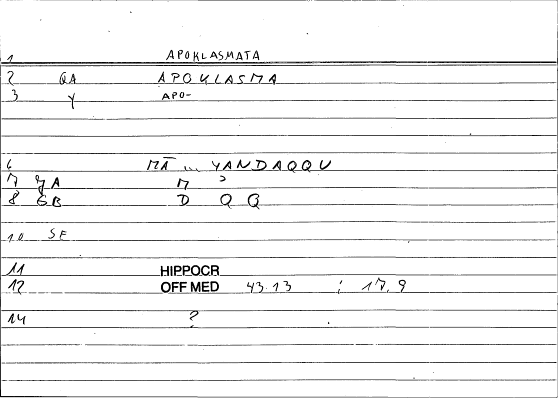 1 APOKLASMATA
2 QA APOKLASMA
3 Y APO-
6 MĀ ... YANDAQQU
7 M ?
8 GB D Q Q
10 SE
11 HIPPOCR
12 OFF MED 43.13 ; 17.9
14 ?